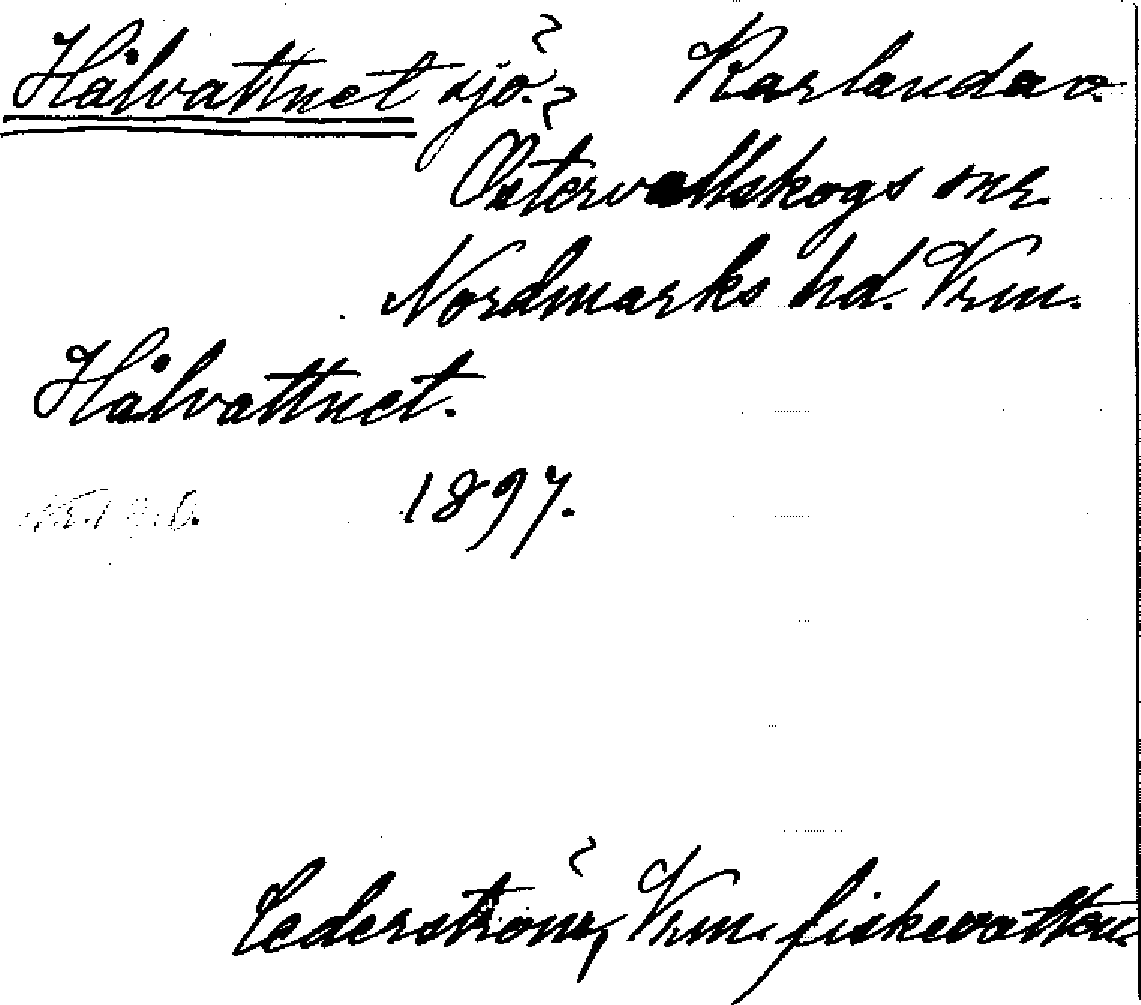 Hålvattnet sjö. Karlanda o.
Östervallskogs snr.
Nordmarks hd. Vrm.
Hålvattnet.
1897.
Cederström, Vrm. fiskevatten.